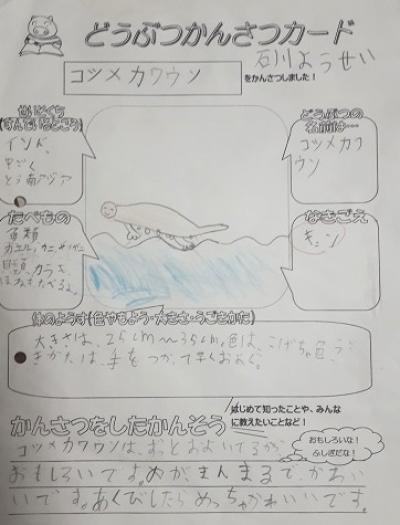 どうぶつかんさつカード
石川ようせい
コツメカワウソ
をかんさつしました！
せいそくち
(すんでいるところ)
インド、
中ごく
とう南アジア
どうぶつの
名前は…
コツメカワ
ウソ
たべもの
魚類
カエル、カニ、ザリガニ
貝類、カラも
ほねもたべるよ。
なきごえ
キュン
体のようす(色やもよう・大きさ・うごきかた)
大きさは、25cm〜35cm。色は、こげちゃ色、う
きかたは、手をつかって早くおよぐ。
はじめて知ったことや、みんな
に教えたいことなど！
かんさつをしたかんそう
おもしろいな！
ふしぎだな！
コツメカワウソは、ずっとおよいでるから
おもしろいです。めが、まんまるで、かわい
いです。あくびしたらめっちゃかわいいです。